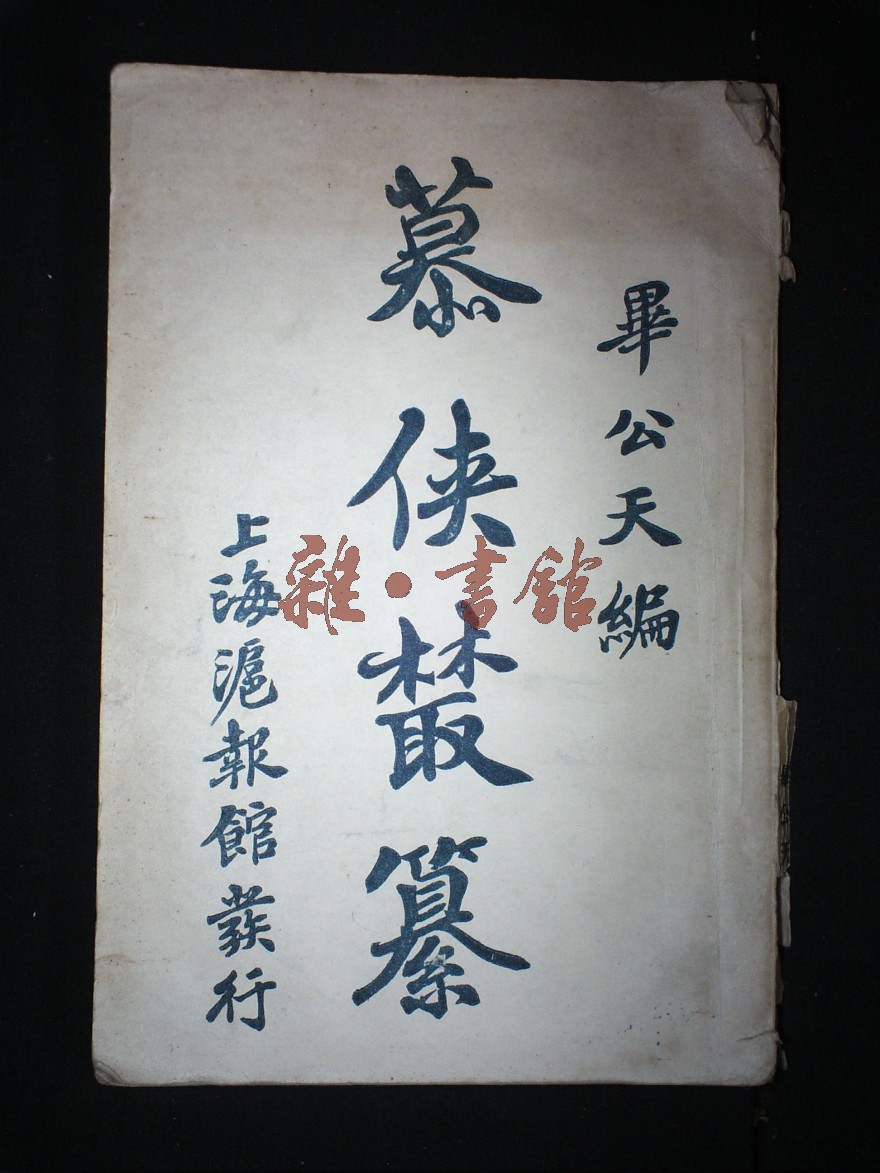 畢公天編
慕俠藂纂
上海滬報館發行
雜·書館